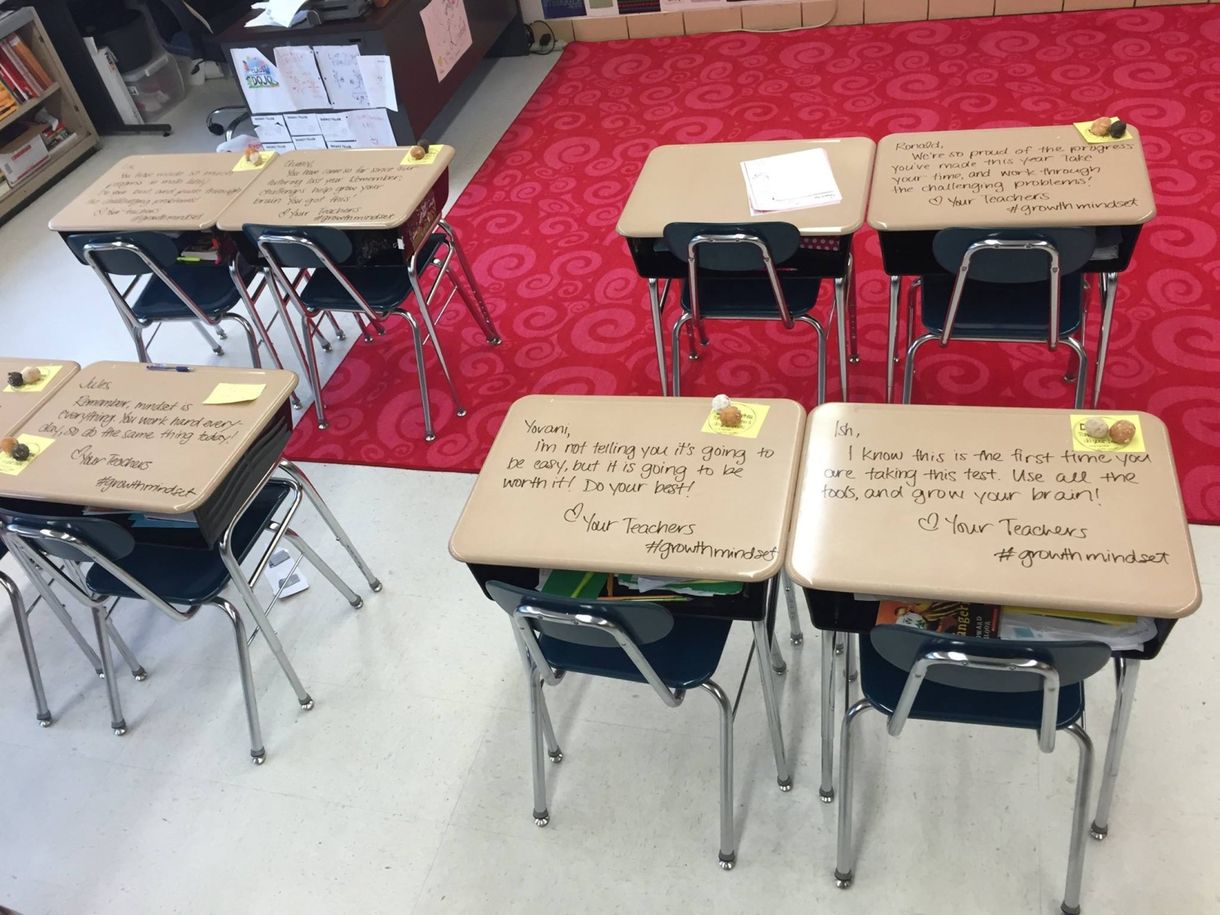 DOJO
You have made so much
You have come so far since our
last year. Remember,
challenges help grow your
brain! You got this!
♡ Your Teachers
#growthmindset
the challenging problems!
♡ Your Teachers
#growthmindset
Ronald,
We're so proud of the progress
you've made this year. Take
your time, and work through
the challenging problems!
♡ Your Teachers
#growthmindset
Jules,
Remember, mindset is
everything. You work hard every-
day, so do the same thing today!
♡ Your Teachers
#growthmindset
Yovani,
I'm not telling you it's going to
be easy, but it is going to be
worth it! Do your best!
♡ Your Teachers
#growthmindset
Ish,
I know this is the first time you
are taking this test. Use all the
tools, and grow your brain!
♡ Your Teachers
#growthmindset